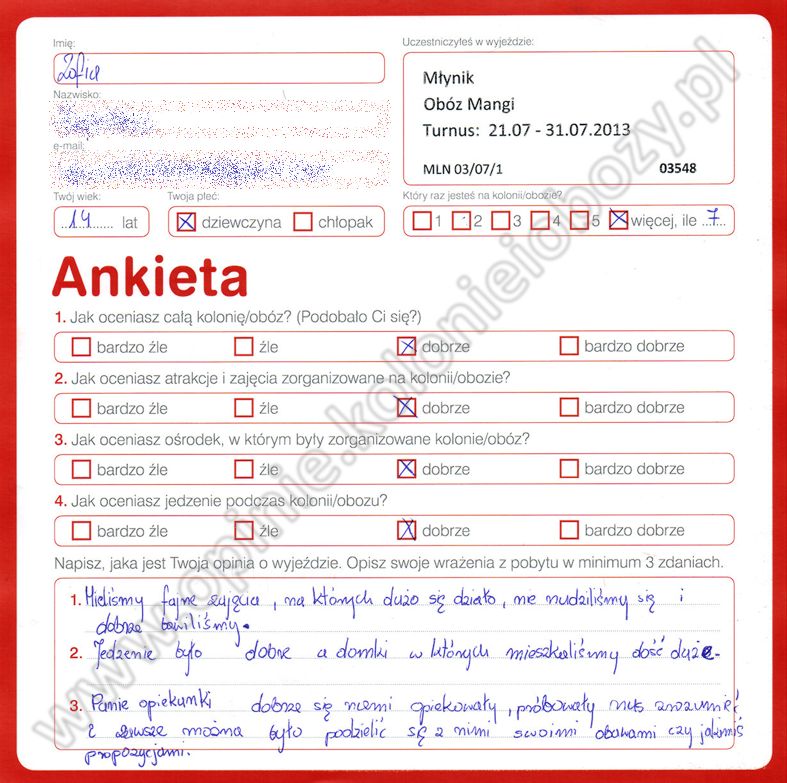 Imię:
Zofia
Nazwisko:
e-mail:
Uczestniczyłeś w wyjeździe:
Młynik
Obóz Mangi
Turnus: 21.07 - 31.07.2013
MLN 03/07/1 03548
Twój wiek:
14 lat
Twoja płeć:
dziewczyna chłopak
Który raz jesteś na kolonii/obozie?
1 2 3 4 5 więcej, ile 7
Ankieta
1. Jak oceniasz całą kolonię/obóz? (Podobało Ci się?)
bardzo źle źle dobrze bardzo dobrze
2. Jak oceniasz atrakcje i zajęcia zorganizowane na kolonii/obozie?
bardzo źle źle dobrze bardzo dobrze
3. Jak oceniasz ośrodek, w którym były zorganizowane kolonie/obóz?
bardzo źle źle dobrze bardzo dobrze
4. Jak oceniasz jedzenie podczas kolonii/obozu?
bardzo źle źle dobrze bardzo dobrze
Napisz, jaka jest Twoja opinia o wyjeździe. Opisz swoje wrażenia z pobytu w minimum 3 zdaniach.
1. Mieliśmy fajne zajęcia, na których dużo się działo, nie nudziliśmy się i
dobrze bawiliśmy.
2. Jedzenie było dobre a domki w których mieszkaliśmy dość duże.
3. Panie opiekunki dobrze się nami opiekowały, próbowały nas zrozumieć
i zawsze można było podzielić się z nimi swoimi obawami czy jakimiś
propozycjami.
www.opinie.kolonieiobozy.pl